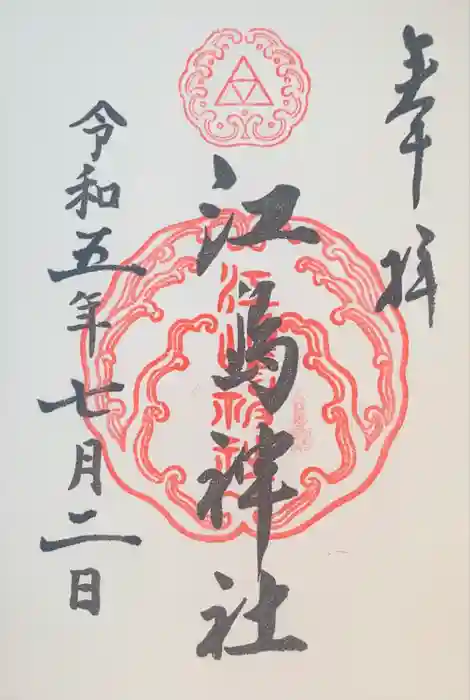 奉拝
江嶋神社
江嶋神社
令和五年七月二日